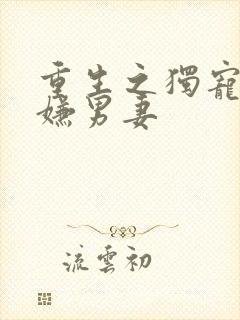 重生之獨寵
嫌男妻
流雲初